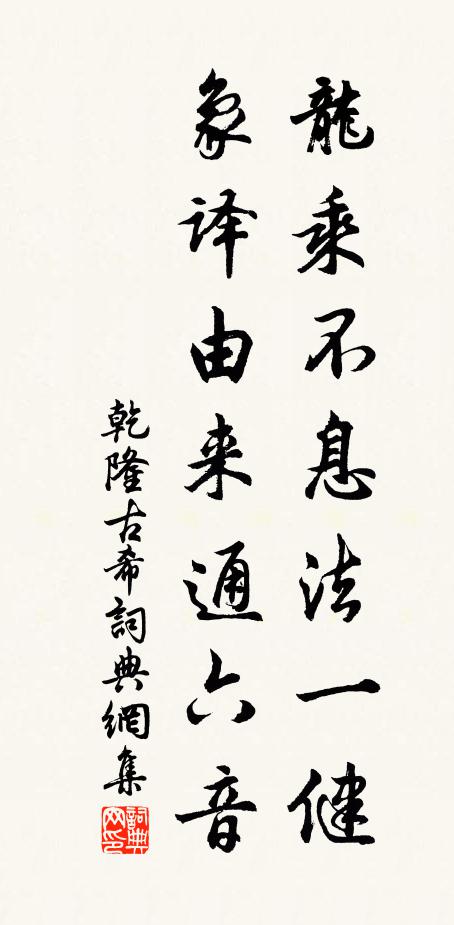 龍乘不息法一健
象译由来通六音
乾隆古希詞典網集
詞典网印